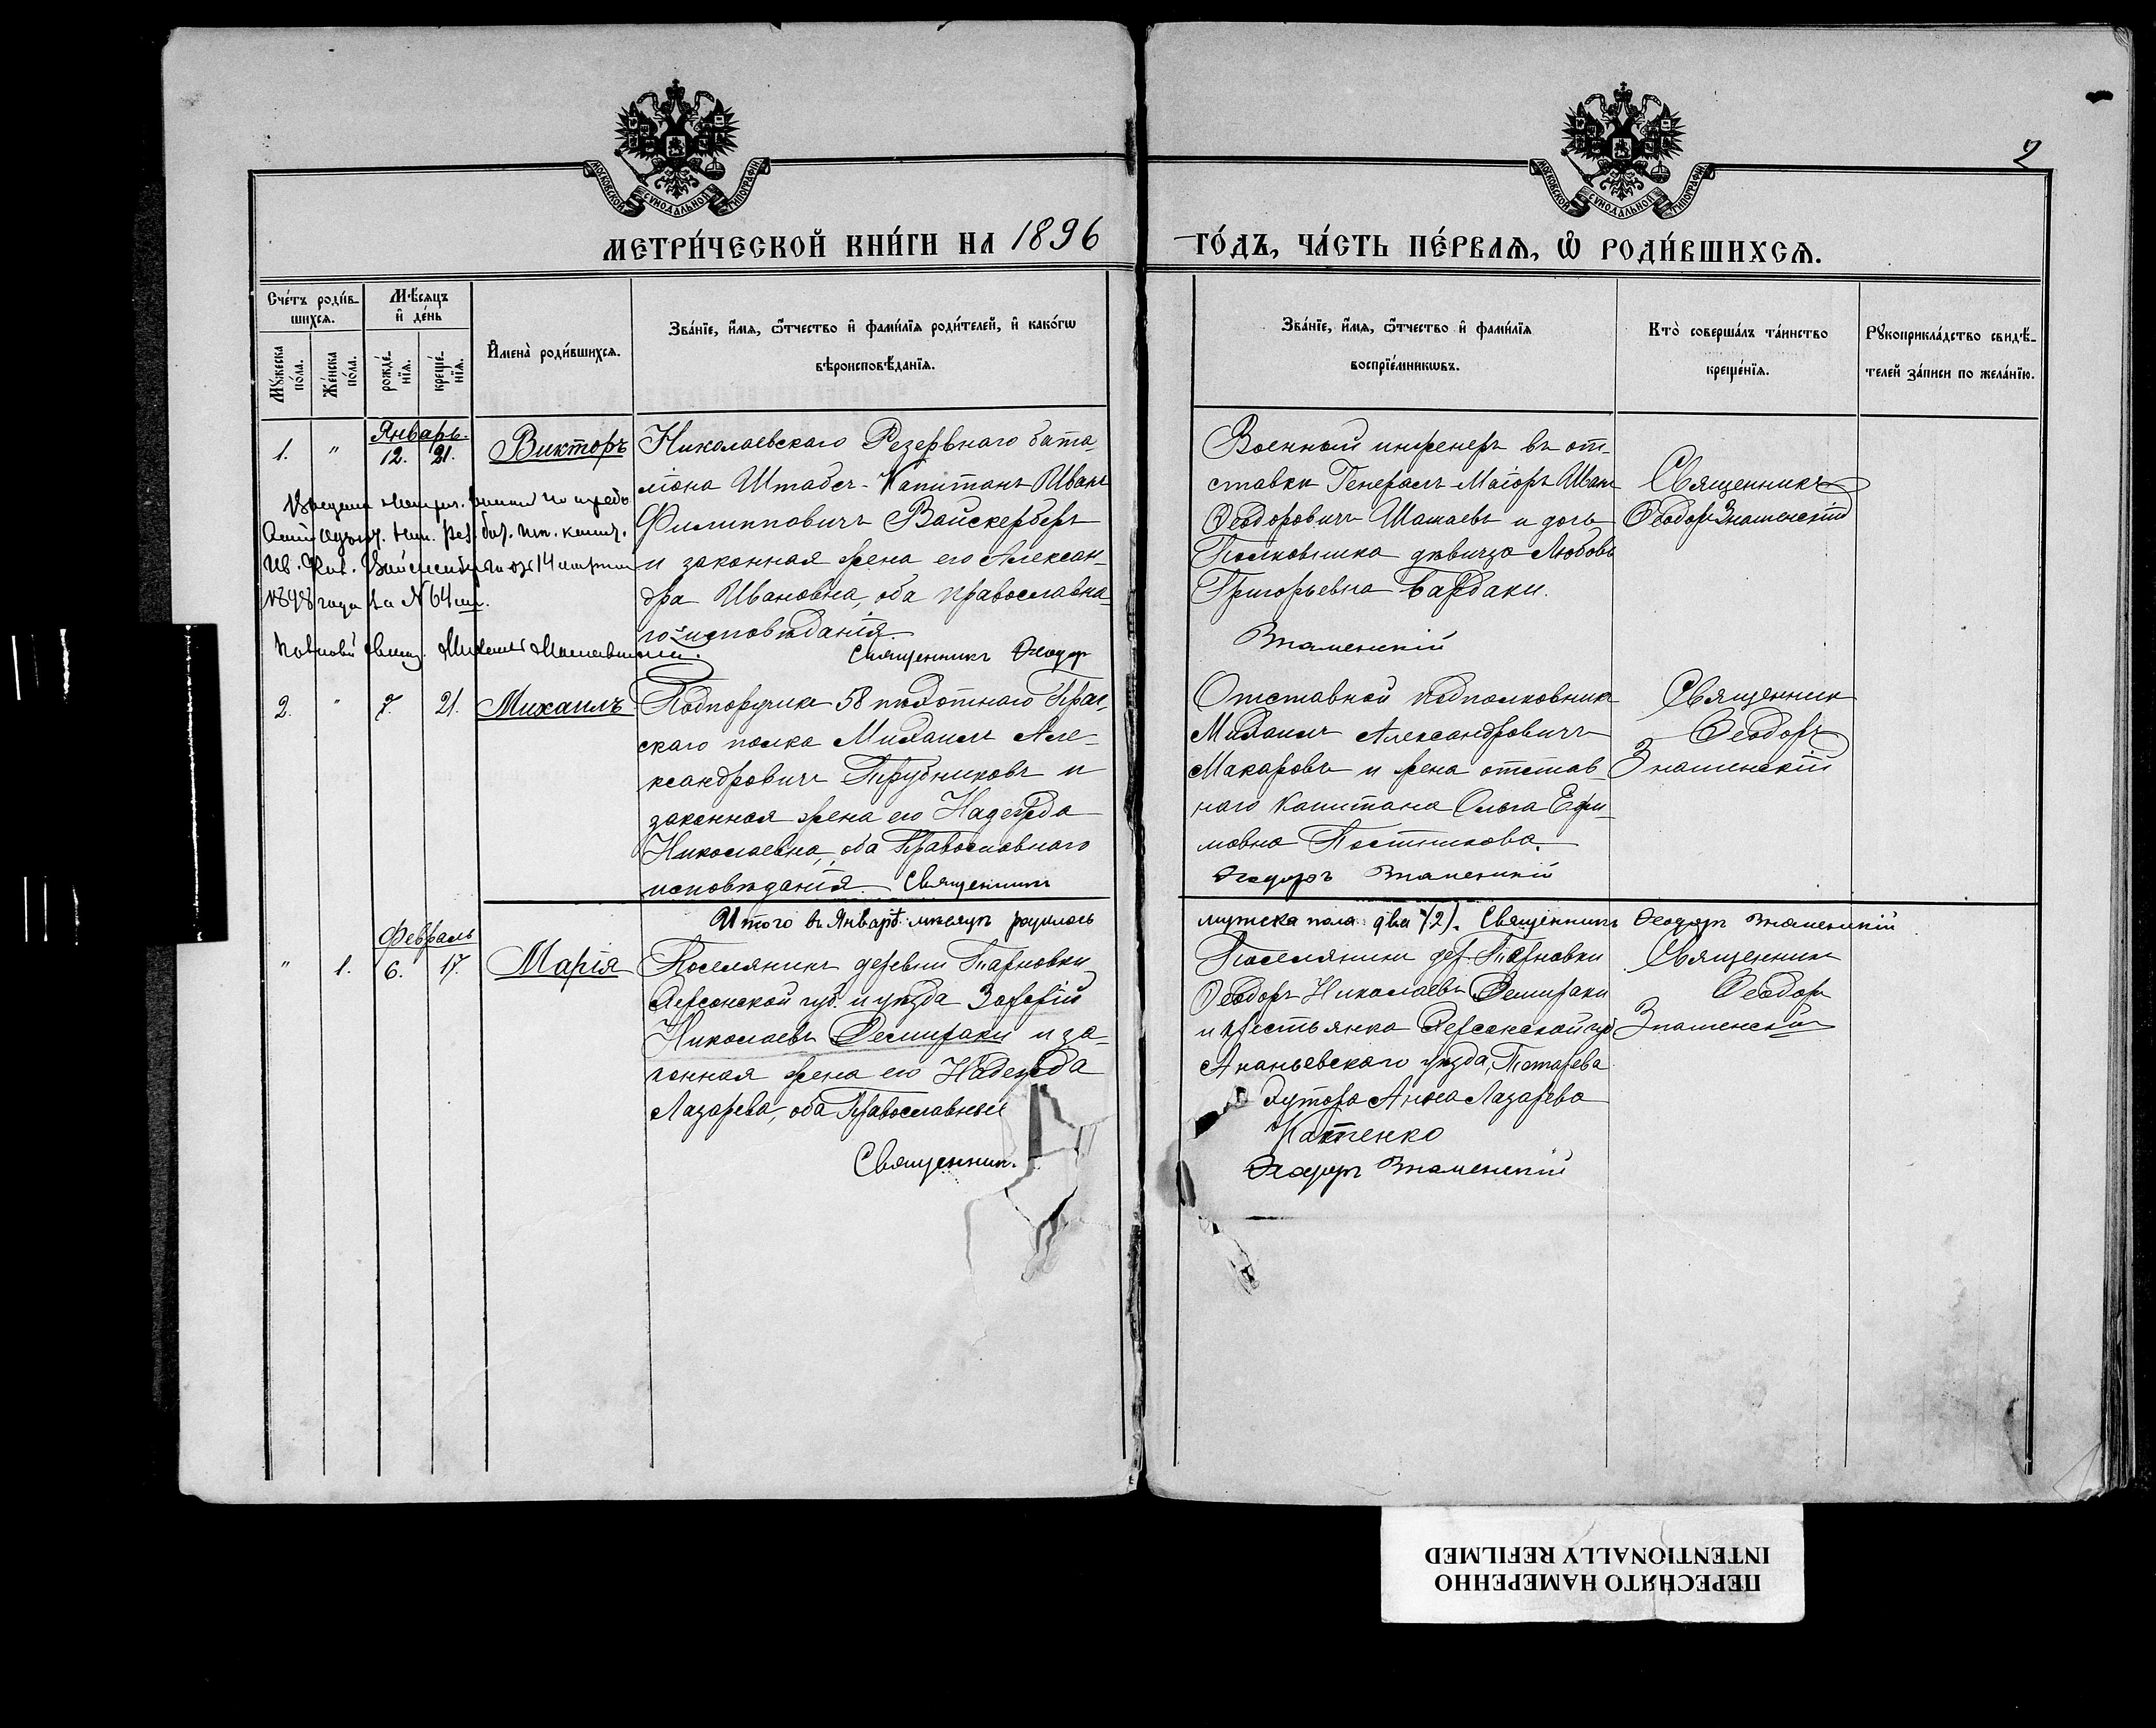 МОСКОВСКОЙ СѴНОДАЛЬНОЙ ТИПОГРАФІИ
МОСКОВСКОЙ СѴНОДАЛЬНОЙ ТИПОГРАФІИ
2
МЕТРИ́ЧЕСКОЙ КНИ́ГИ НА 1896
ГО́ДЪ, ЧА́СТЬ ПЕ́РВАѦ, Ѡ҆ РОДИ́ВШИХСѦ.
Сче́тъ роди́в-
шихсѧ.
Мꙋ́жеска по́ла.
Же́нска по́ла.
Мѣ́сѧцъ
и҆ де́нь
рожде́-нїѧ.
креще́-нїѧ.
И҆мена̀ роди́вшихсѧ.
Зва́нїе, и҆́мѧ, ѻ҆́тчество и҆ фами́лїѧ роди́телей, и҆ како́гѡ
вѣроисповѣ́данїѧ.
Зва́нїе, и҆́мѧ, ѻ҆́тчество и҆ фами́лїѧ
воспрїе́мникѡвъ.
Кто̀ соверша́лъ та́инство
креще́нїѧ.
Рꙋкоприкла́дство свидѣ́-
телей за́писи по жела́нїю.
Январь.
1. " 12. 21. Викторъ
Николаевскаго Резервнаго бата-
ліона Штабсъ-Капитанъ Иванъ
Филипповичъ Вайскерберъ
и законная жена его Алексан-
дра Ивановна, оба православна-
го исповѣданія.
Священникъ Ѳеодоръ
1898 года за № 64
Военный инженеръ въ от-
ставки Генералъ-Маіоръ Иванъ
Ѳеодоровичъ Шамаевъ и дочь
Полковника дѣвица Любовь
Григорьевна Бардаки.
Знаменскій
Священникъ
Ѳеодоръ Знаменскій
2. " 7. 21. Михаилъ
Подпоручикъ 58 пѣхотнаго Праг-
скаго полка Михаилъ Але-
ксандровичъ Трубниковъ и
законная жена его Надежда
Николаевна, оба Православнаго
исповѣданія. Священникъ
Отставной подполковникъ
Михаилъ Александровичъ
Макаровъ и жена отстав-
наго Капитана Ольга Ефи-
мовна Постникова.
Ѳеодоръ Знаменскій
Священникъ
Ѳеодоръ
Знаменскій
Итого въ Январѣ мѣсяцѣ родилось
мужеска пола два (2). Священникъ Ѳеодоръ Знаменскій
Февраль
" 1. 6. 17. Марія
Поселянинъ деревни Терновки
Херсонской губ. и уѣзда Захарій
Николаевъ Демираки и за-
конная жена его Надежда
Лазарева, оба Православные
Священникъ
Поселянинъ дер. Терновки
Ѳеодоръ Николаевъ Демираки
и крестьянка Херсонской губ
Ананьевскаго уѣзда,
хутора Анна Лазарева
Ѳеодоръ Знаменскій
Священникъ
Ѳеодоръ
Знаменскій
ПЕРЕСНЯТО НАМЕРЕННО
INTENTIONALLY REFILMED